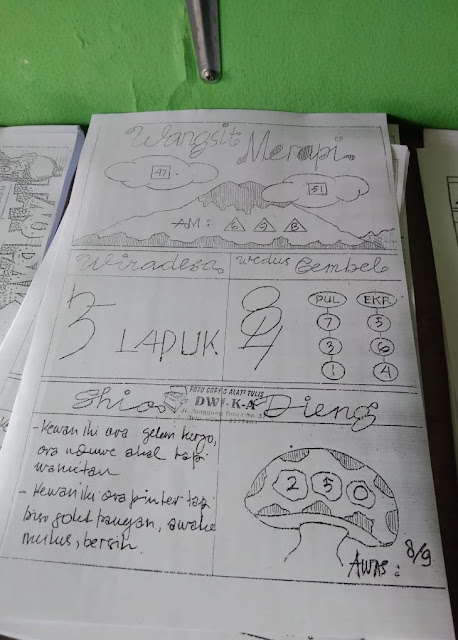 Wangsit Merapi
47
51
AM: 6 9 8
Wiradesa
Wedus Gembel
5
3 LAPUK
8
4
PUL EKR
7 5
3 6
1 4
Shio
Dieng
FOTO COPY & ALAT TULIS
DWI-K-A
- Kewan iki ora gelem kerjo,
ora nduwe akal tapi
wanitan
- Kewan iki ora pinter tapi
biso golek pangan, awake
mulus, bersih.
2 5 0
AWAS: 8/9